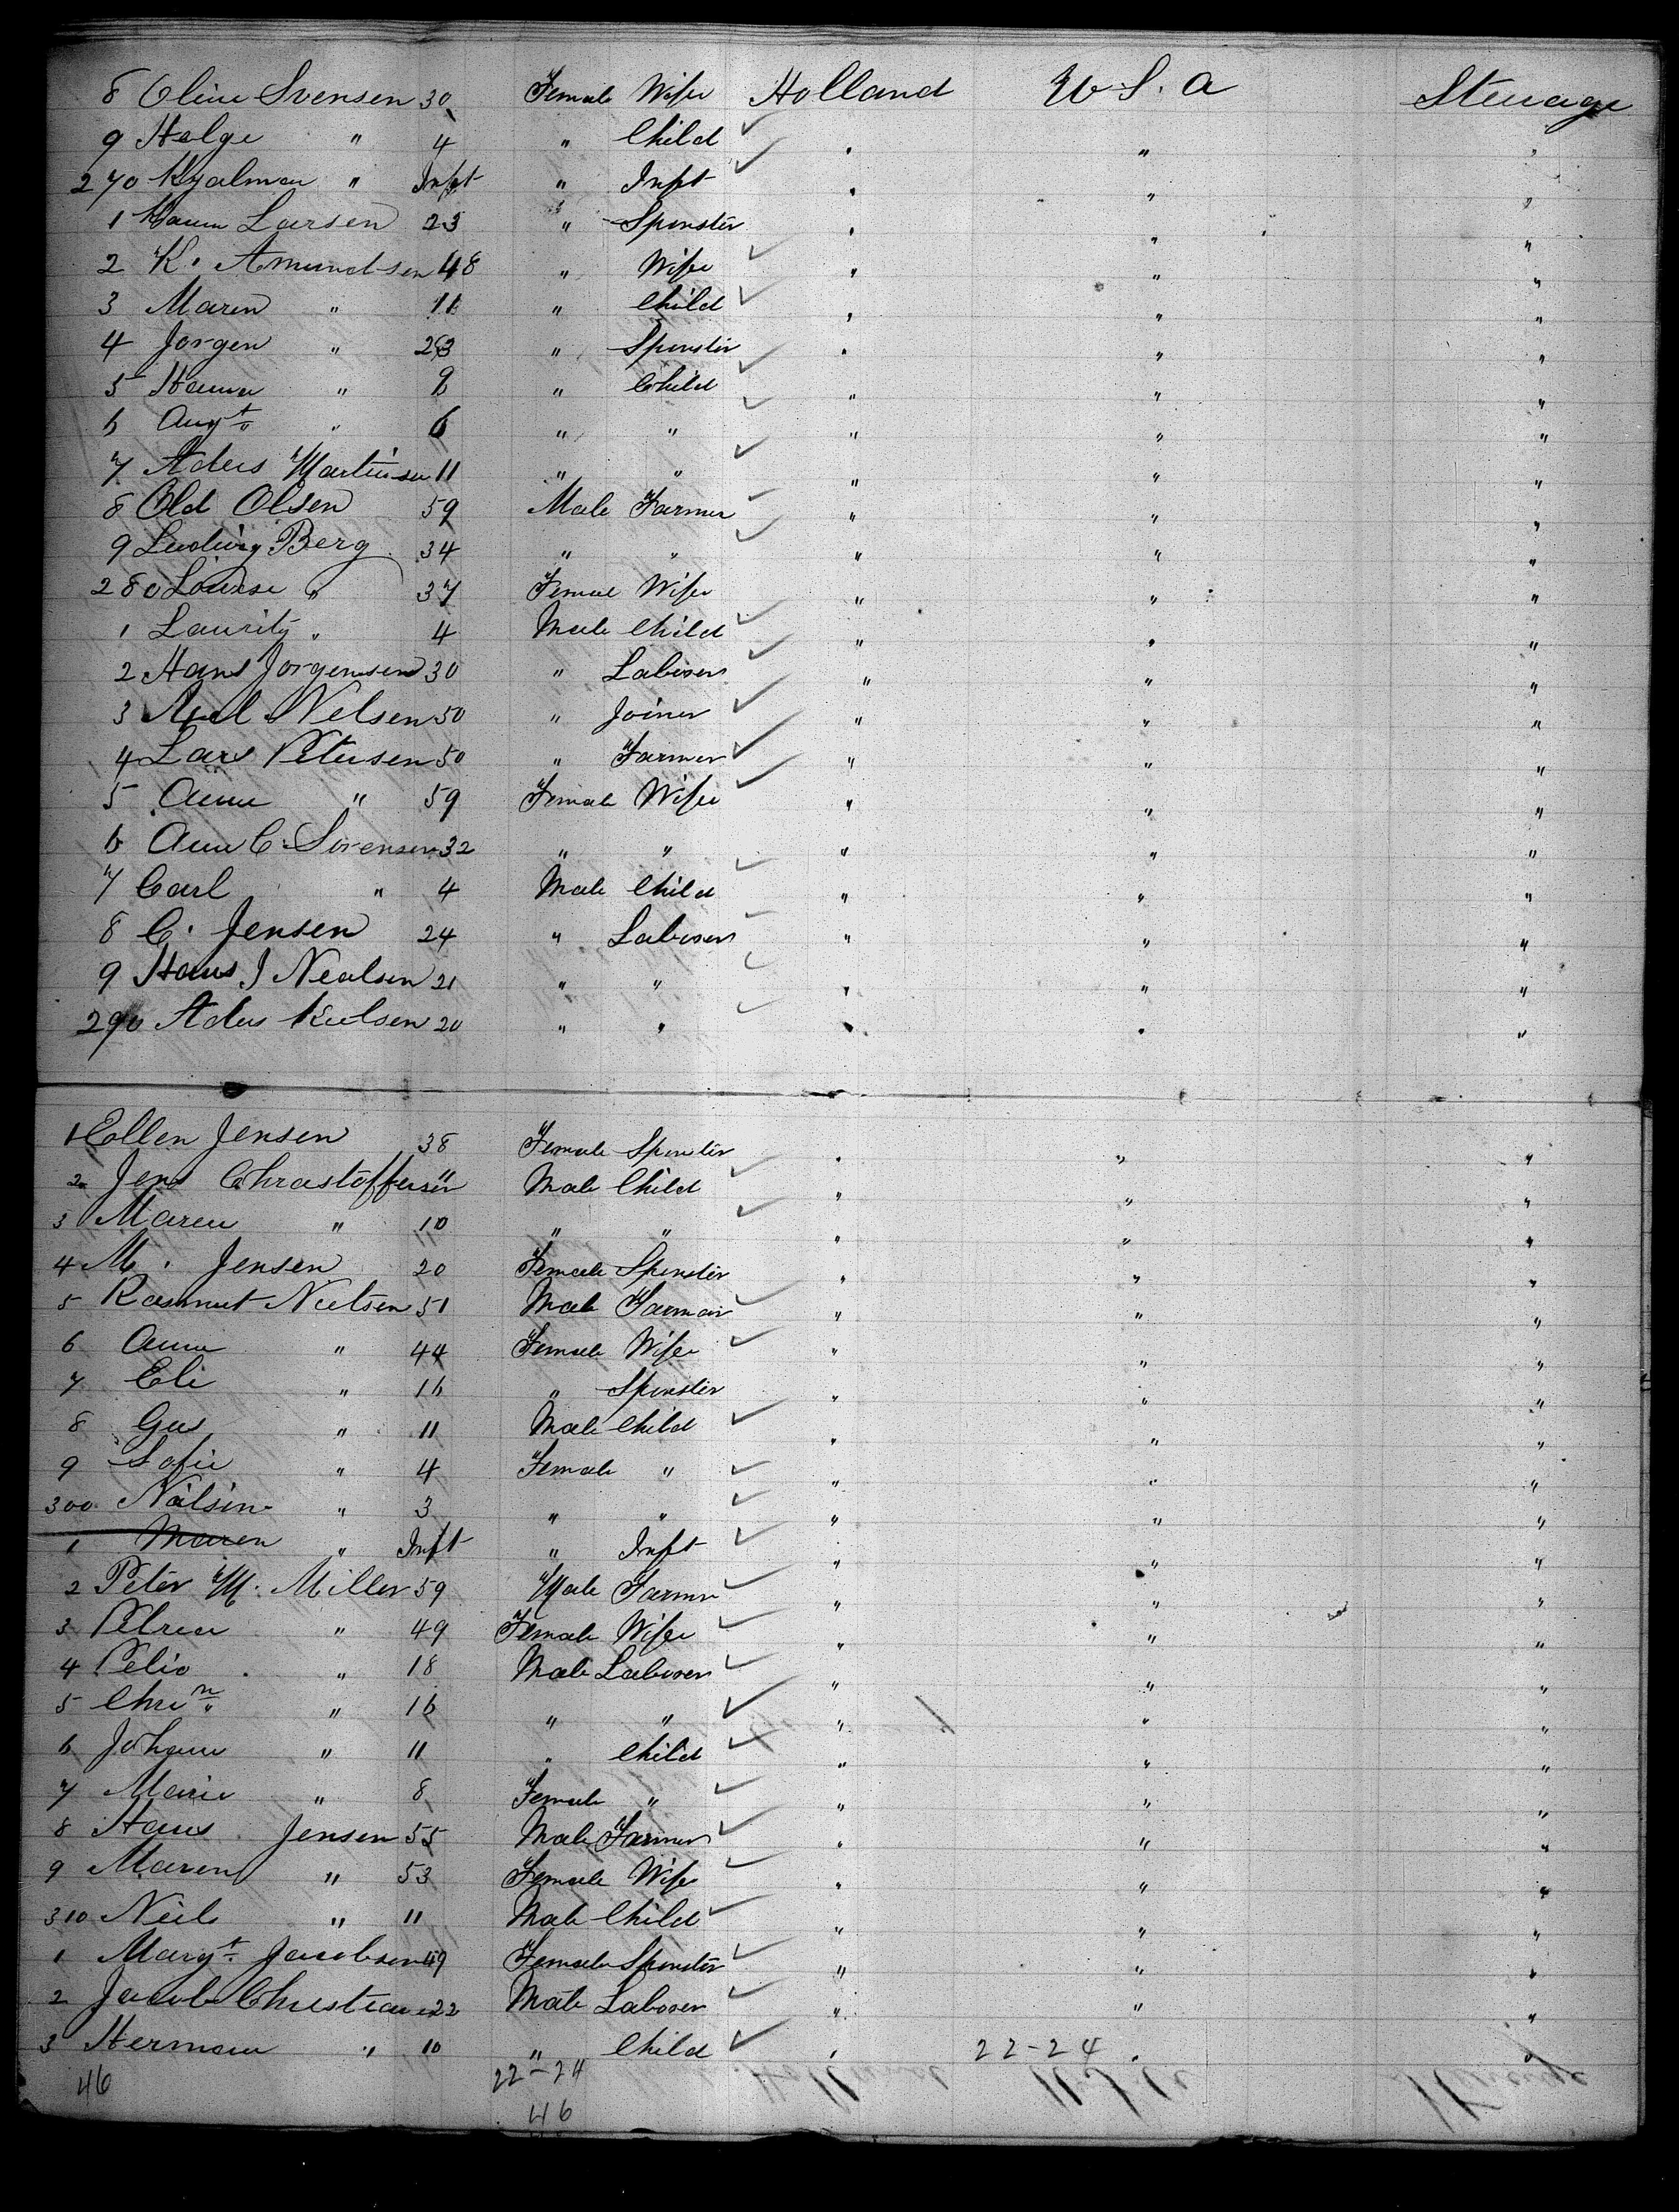 8 Oline Svensen 30 Female Wife Holland U S. A Steerage
9 Helge " 4 " Child " " "
270 Hjalmar " Inft " Inft " " "
1 Larsen 23 " Spinster " " "
2 K. Amundsen 48 " Wife " " "
3 Maren " 11 " Child " " "
4 Jorgen " 23 " Spinster " " "
5 Hanna " 8 " Child " " "
6 Augt " 6 " " " " "
7 Martinsen 11 " " " " "
8 Old Olsen 59 Male Farmer " " "
9 Ludwig Berg 34 " " " " "
280 Louise " 37 Female Wife " " "
1 Lauritz " 4 Male Child " " "
2 Hans Jorgensen 30 " Laborer " " "
3 Nelsen 50 " Joiner " " "
4 Lars Petersen 50 " Farmer " " "
5 Anna " 59 Female Wife " " "
6 Ann C. Sorensen 32 " " " " "
7 Carl " 4 Male Child " " "
8 C. Jensen 24 " Laborer " " "
9 Hans J Nealsen 21 " " " " "
290 20 " " " " "
1 Ellen Jensen 38 Female Spinster " " "
2 Jens Chrastoffersen 11 Male Child " " "
3 Maren " 10 " " " " "
4 M. Jensen 20 Female Spinster " " "
5 Rasmut Nielsen 51 Male Farmer " " "
6 Anna " 44 Female Wife " " "
7 Eli " 16 " Spinster " " "
8 Gus " 11 Male Child " " "
9 Sofie " 4 Female " " " "
300 Nilsine " 3 " " " " "
1 Maren " Inft " Inft " " "
2 Peter M. Miller 59 Male Farmer " " "
3 Petrea " 49 Female Wife " " "
4 " 18 Male Laborer " " "
5 Chrn " 16 " " " " "
6 Johann " 11 " Child " " "
7 Marie " 8 Female " " " "
8 Hans Jensen 55 Male Farmer " " "
9 Maren " 53 Female Wife " " "
310 Neils " 11 Male Child " " "
1 Margt Jacobsen 49 Female Spinster " " "
2 Jacob Christian 22 Male Laborer " " "
3 Herman " 10 " Child " 22-24 " "
46 22-24
46